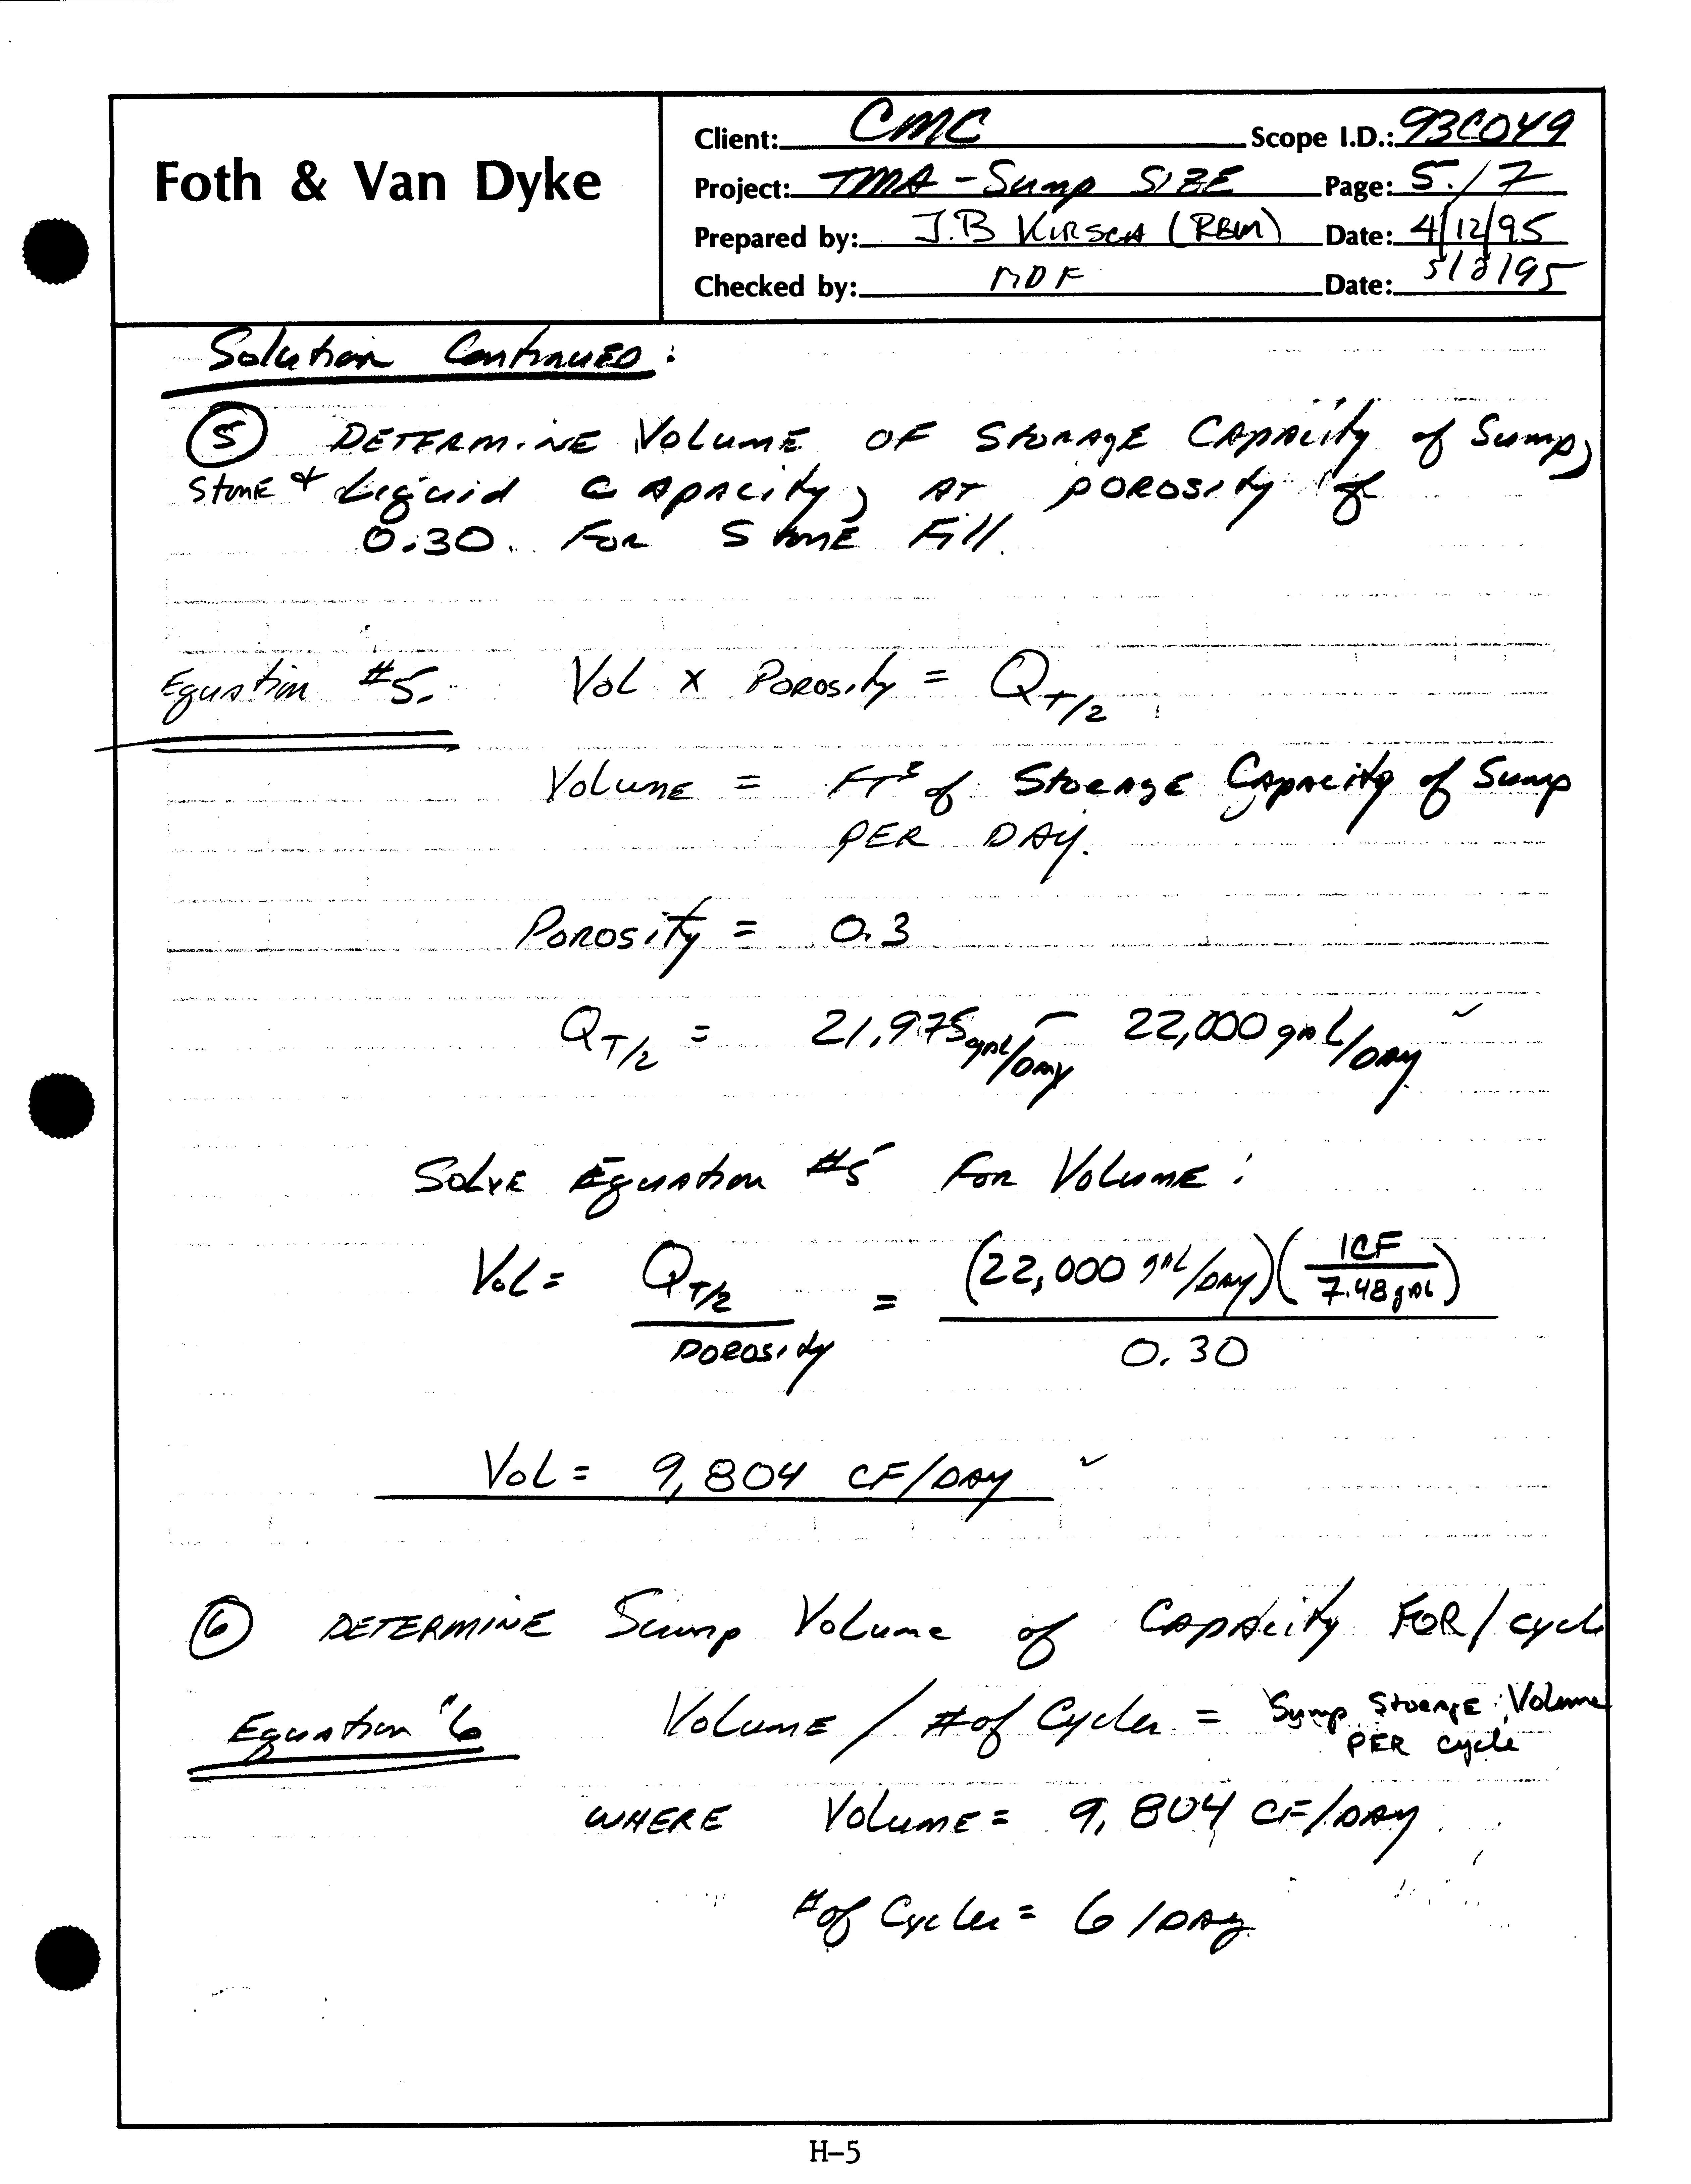 Foth & Van Dyke
Client: CMC Scope I.D.: 93C049
Project: TMA - Sump SIZE Page: 5/7
Prepared by: J.B KIRSCH (RBM) Date: 4/12/95
Checked by: MDF Date: 5/8/95
Solution Continued:
5 DETERMINE VOLUME OF STORAGE CAPACITY of Sump,
STONE & Liquid CAPACITY, AT POROSITY of
0.30 FOR STONE Fill.
Equation #5. Vol x Porosity = QT/2
Volume = FT³ of STORAGE CAPACITY of Sump
PER DAY.
POROSITY = 0.3
QT/2 = 21,975 gal/DAY ~ 22,000 gal/DAY ✓
Solve Equation #5 For Volume:
Vol = QT/2 / POROSITY = (22,000 gal/DAY)(1CF / 7.48 gal) / 0.30
Vol = 9,804 CF/DAY ✓
6 DETERMINE Sump Volume of CAPACITY FOR / cycle
Equation "6 Volume / # of Cycles = Sump Storage Volume
PER cycle
WHERE Volume = 9,804 CF/DAY
# of Cycles = 6 /DAY
H-5